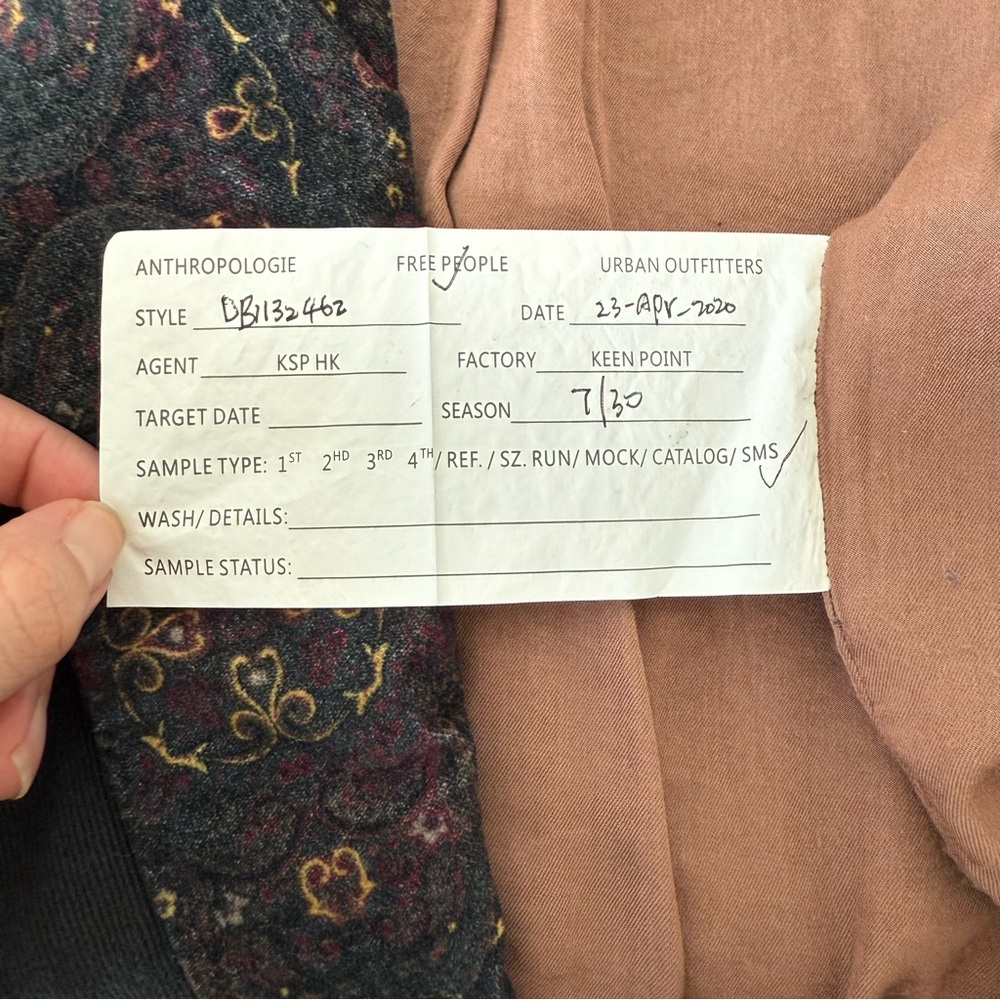 ANTHROPOLOGIE FREE PEOPLE URBAN OUTFITTERS
STYLE DB1132462 DATE 23-Apr-2020
AGENT KSP HK FACTORY KEEN POINT
TARGET DATE SEASON 7/30
SAMPLE TYPE: 1ST 2HD 3RD 4TH/ REF. / SZ. RUN/ MOCK/ CATALOG/ SMS
WASH/ DETAILS:
SAMPLE STATUS: